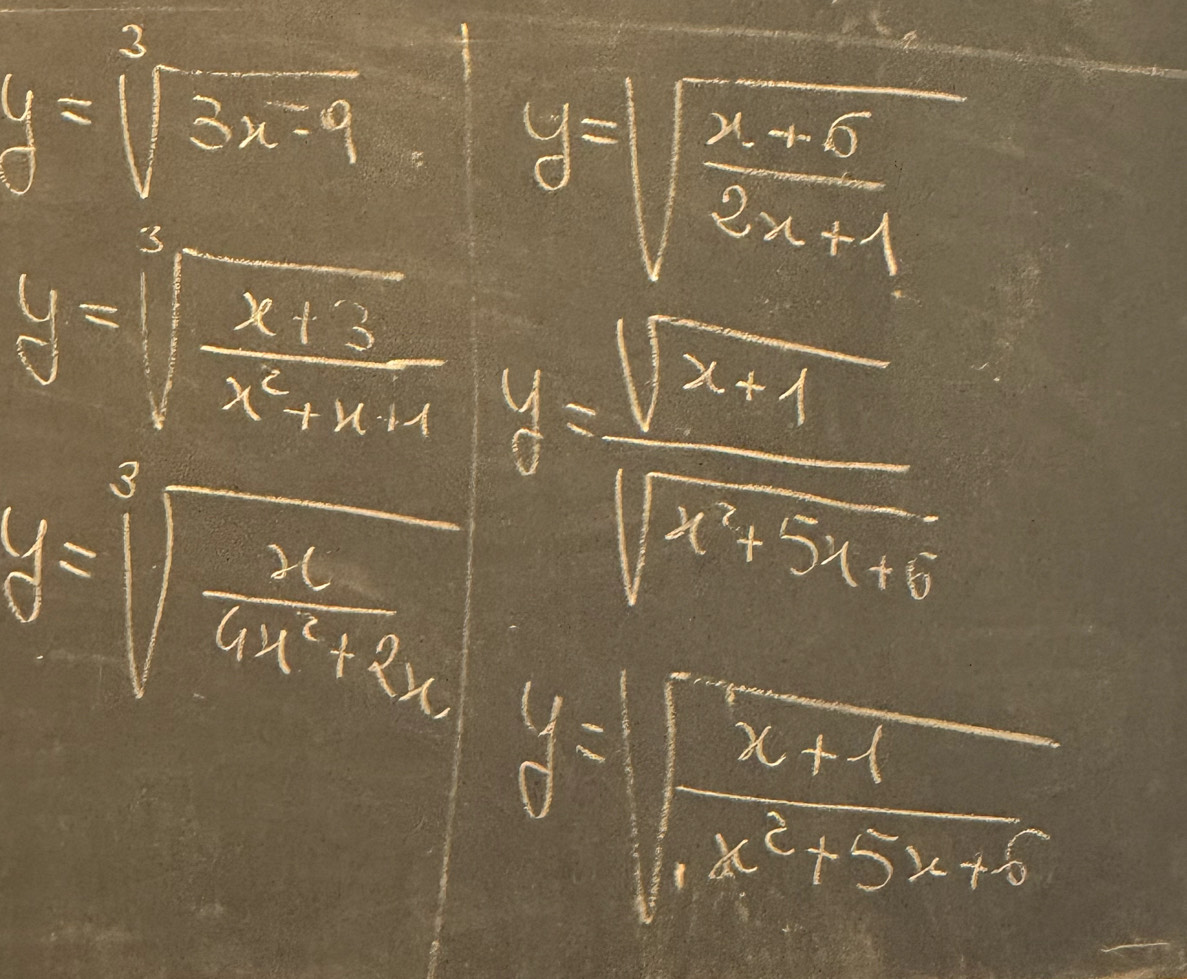 y = ∛(3x-9)
y = ∛((x+3)/(x²+x+1))
y = ∛(x/(4x²+2x))
y = √((x+6)/(2x+1))
y = √(x+1)/√(x²+5x+6)
y = √((x+1)/(x²+5x+6))